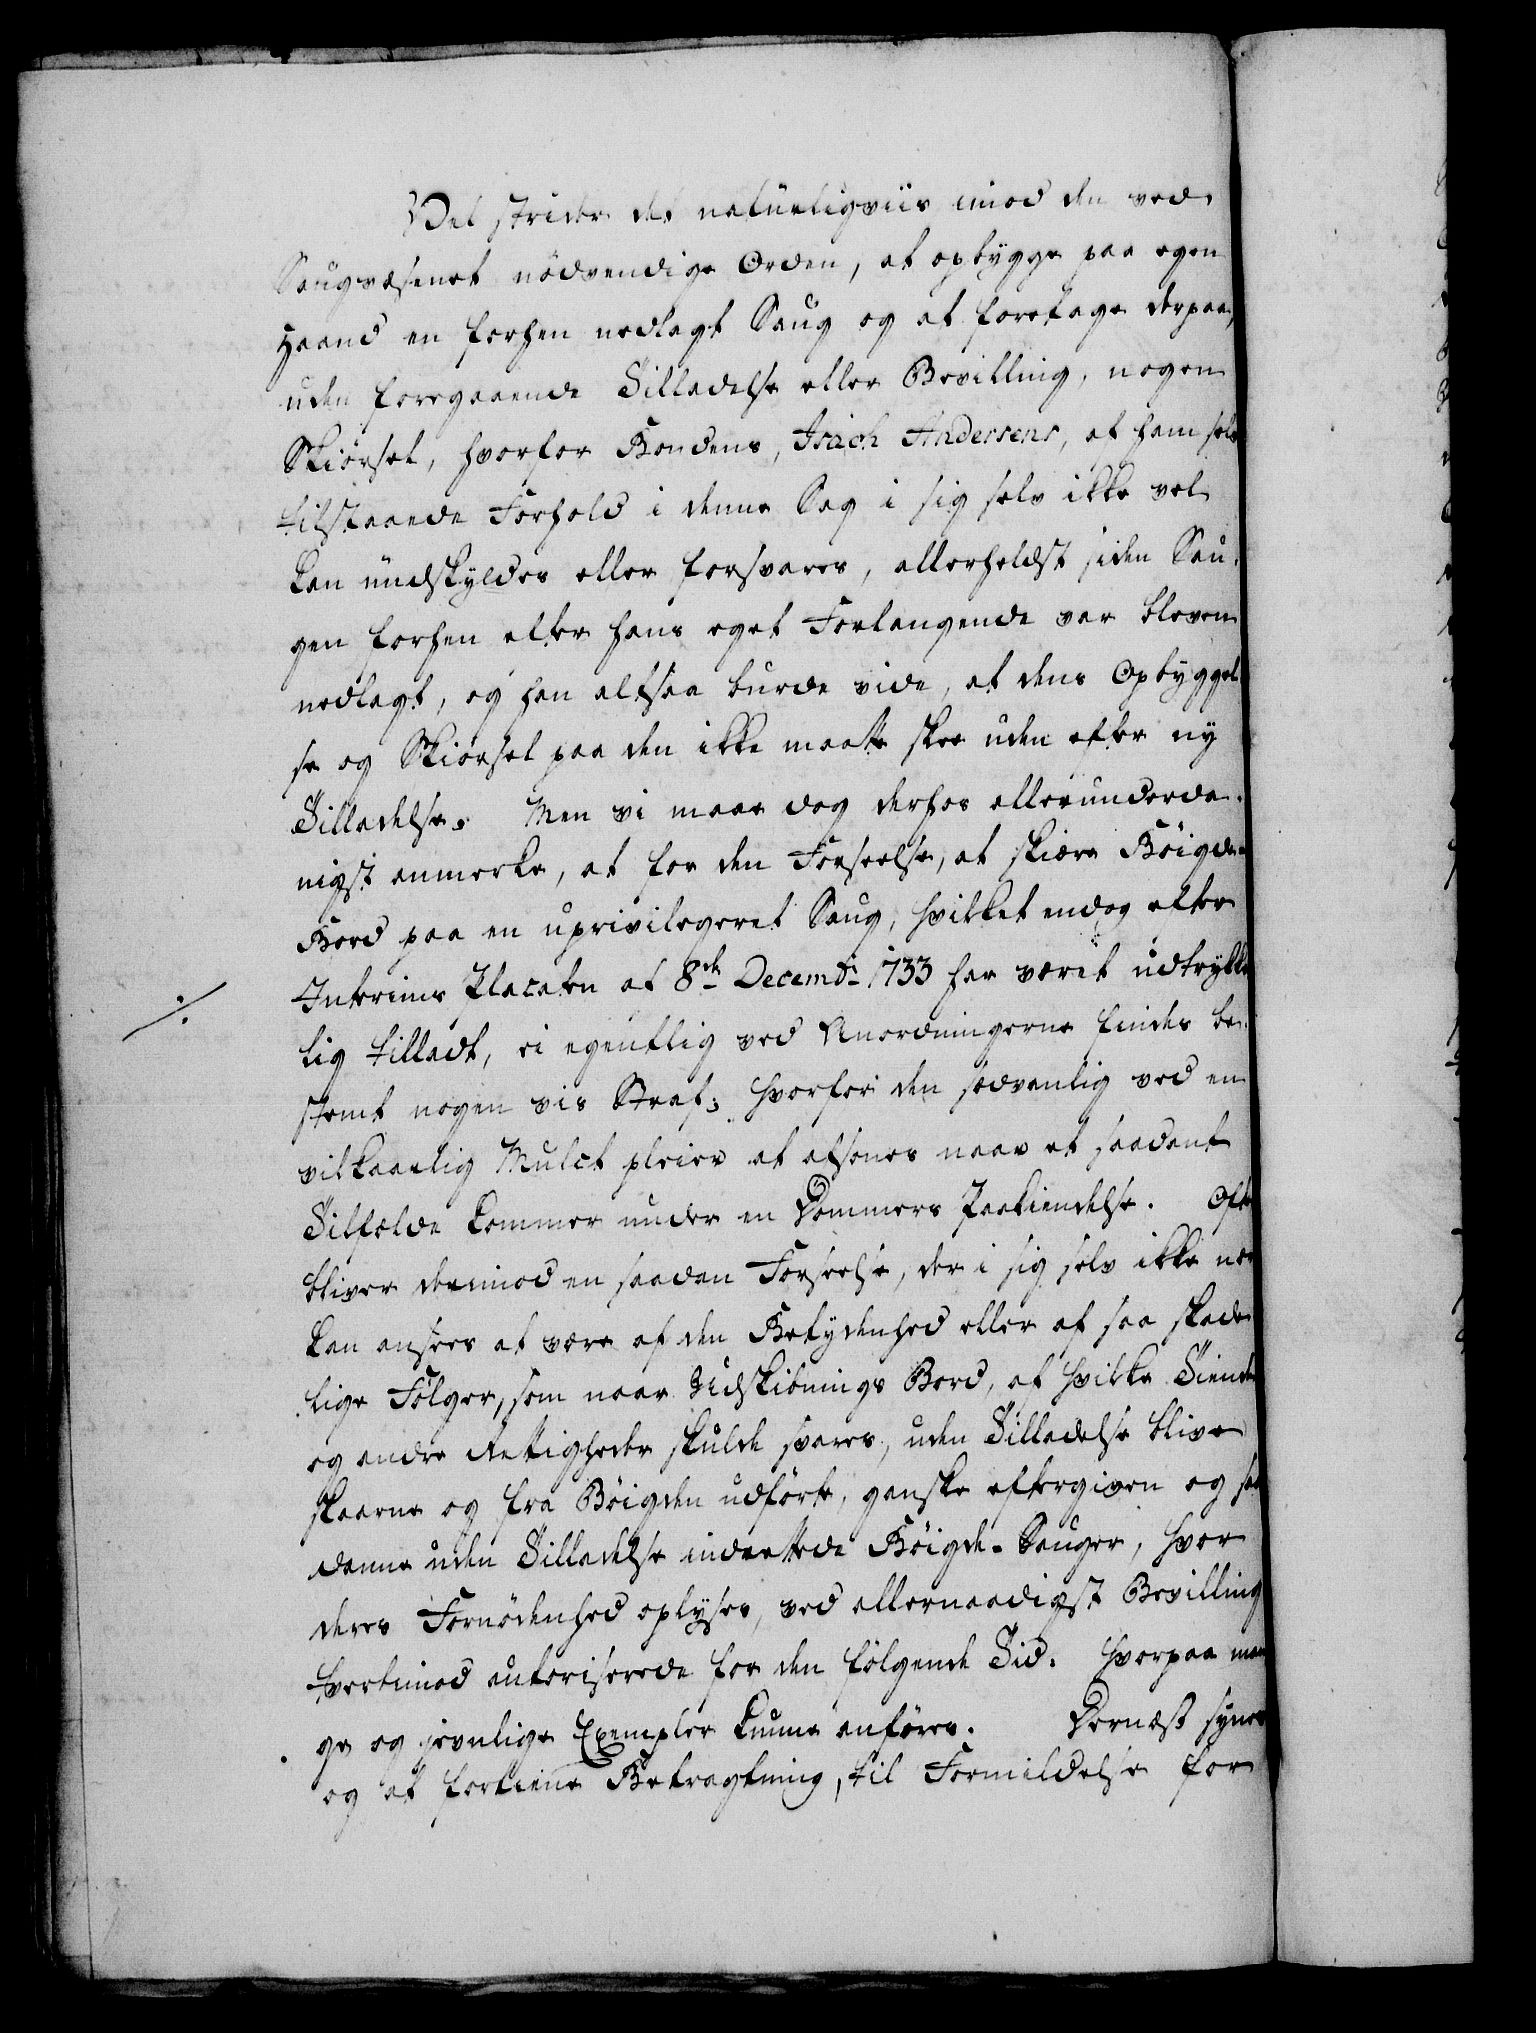 Vel strider det natürligviis imod den ved
Saugvæsenet nödvendige Orden, at opbygge paa egen
Haand en forhen nedlagt Saug og at foretage derpaa,
uden foregaaende Tilladelse eller Bevilling, nogen
Skiörsel, hvorfor Bondens, Isach Andersens, af ham selv
tilstaaede Forhold i denne Sag i sig selv ikke vel
kan undskyldes eller forsvares, allerhelst siden Sau-
gen forhen efter hans eget Forlangende var bleven
nedlagt, og han altsaa burde vide, at dens Opbyggel
se og Skiörsel paa den ikke maatte skee uden efter ny
Tilladelse. Men vi maae dog derhos allerunderda-
nigst anmerke, at for den Forseelse, at skiære Böigde-
Bord paa en uprivilegeret Saug, hvilket endog efter
Interims Placaten af 8de Decembr 1733 har været udtrykke
./.
lig tilladt, ei egentlig ved Anordningerne findes be-
stemt nogen vis Straf; hvorfor den sædvanlig ved en
vilkaarlig Mulct pleier at afsones naar et saadant
Tilfælde kommer under en Dommers Paakiendelse. Ofte
bliver derimod en saadan Forseelse, der i sig selv ikke
kan ansees at være af den Betydenhed eller af saa skade
lige Fölger, som naar Udskibnings Bord, af hvilke Tiende
og andre Rettigheder skulde svares, uden Tilladelse blive
skaarne og fra Böigden udförte, ganske eftergiven og saa
danne uden Tilladelse indrettede Böigde-Sauger, hvor
deres Fornödenhed oplyses, ved allernaadigst Bevilling
tvertimod autoriserede for den fölgende Tid. Hvorpaa man
ge og jevnlige Exempler kunne anföres. Dernæst synes
og at fortiene Betragtning, til Formildelse for